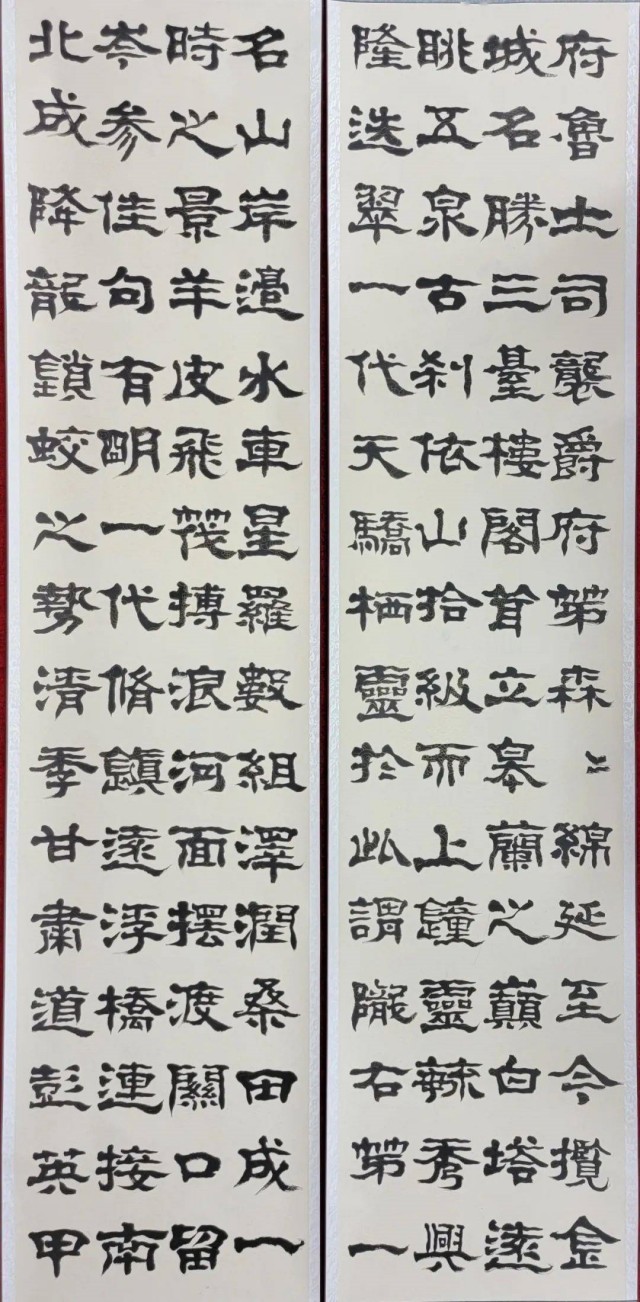 府魯土司襲爵府第森〻綿延至今攬金
城名勝三臺樓閣耸立皋蘭之巔白塔遠
眺五泉古刹依山拾級而上鐘靈毓秀興
隆迭翠一代天驕栖靈於此謂隴右第一
名山岸邊水車星羅數組澤潤桑田成一
時之景羊皮飛筏搏浪河面摆渡關口留
岑参佳句有明一代脩鎮遠浮橋連接南
北成降龍鎖蛟之勢清季甘肅道彭英甲